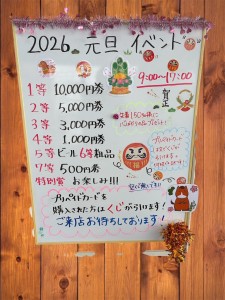 2026 元旦 イベント
9:00~17:00
1等 10,000円券
2等 5,000円券
3等 3,000円券
4等 1,000円券
5等 ビール 6等 粗品
7等 500円券
特別賞 お楽しみ!!!
賀正
先着150名様に
プリペイドカードを
購入された方はくじが引けます!
ご来店お待ちしております!